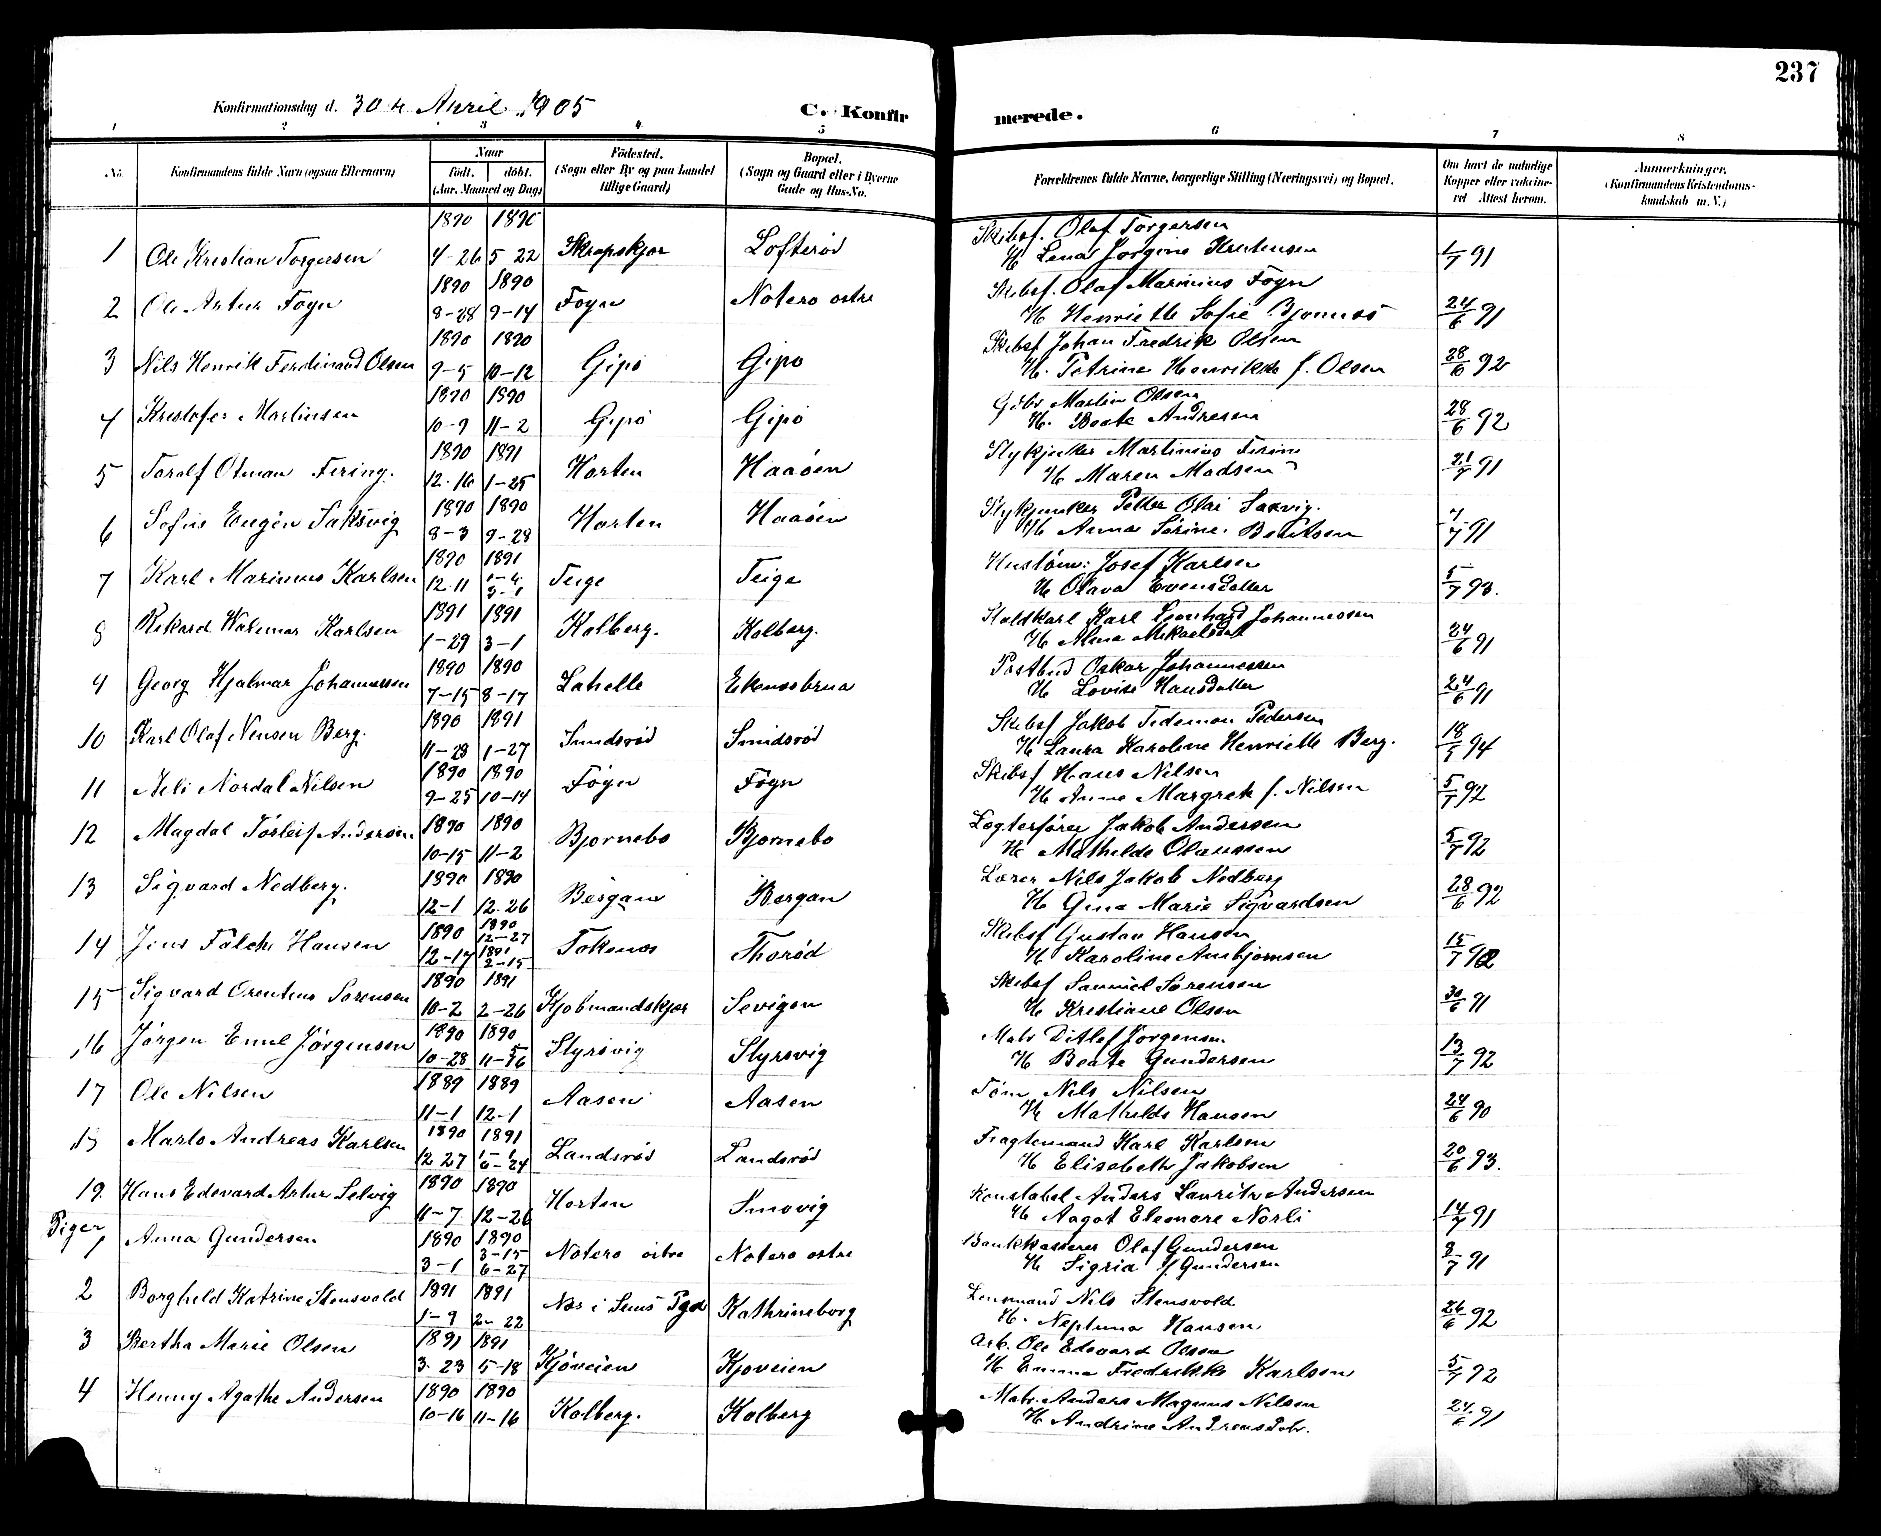 237
Konfirmationsdag d. 30te April 1905
C. Konfirmerede.
1 2 3 4 5 6 7 8
No.
Konfirmandens fulde Navn (ogsaa Efternavn)
Naar
født. døbt.
(Aar, Maaned og Dag)
Fødested.
(Sogn eller By og paa Landet
tillige Gaard)
Bopæl.
(Sogn og Gaard eller i Byerne
Gade og Hus-No.
Forældrenes fulde Navne, borgerlige Stilling (Næringsvei) og Bopæl.
Om havt de naturlige
Kopper eller vaccine-
ret Attest herom.
Anmerkninger.
(Konfirmandens Kristendoms-
kundskab m. V.)
1 Ole Kristian Torgersen 1890 4-26 1890 5 22 Skrapskjær Lofterød Skibsf. Olaf Torgersen
H Lena Jorgine Kristensen 1/7 91
2 Ole Artur Foyn 1890 8-28 1890 9-14 Foyn Nøtero østre Skibsf. Olaf Marinius Foyn
H Henriette Sofie Bjønnes 24/6 91
3 Nils Henrik Ferdinand Olsen 1890 9-5 1890 10-12 Gipø Gipø Skibsf Johan Fredrik Olsen
H. Petrine Henrikke f. Olsen 28/6 92
4 Kristofer Martinsen 1890 10-9 1890 11-2 Gipø Gipø Martin Olsen
H. Beate Andresen 28/6 92
5 Toralf Otman Fering. 1890 12-16 1891 1-25 Horten Haaøen Stykjunker Martinius Fering
H Maren Madsen 91
6 Sofus Eugen Saksvig 1890 8-3 1890 9-28 Horten Haaøen Stykjunker Petter Olai Saxvig.
H Anna Sørine Bentsen 91
7 Karl Marinius Karlsen 1890 12-11 1891 Teige Teige Hustøm: Josef Karlsen
H Olava Evensdatter 5/7 93.
8 Rikard Walemar Karlsen 1891 1-29 1891 3-1 Kolberg. Kolberg. Staldkarl Karl Leonhard Johannessen
H Alma Mikaelsdatt 24/6 91
9 Georg Hjalmar Johannessen 1890 7-15 1890 8-17 Lahelle Ekenessbrua Postbud Oskar Johannessen
H Lovise Hansdatter 24/6 91
10 Karl Olaf Nensen Berg. 1890 11-28 1891 1-27 Smidsrød Smidsrød Skibsf Jakob Tideman Pedersen
H Laura Karoline Henriette Berg. 18/5 94
11 Nordal Nilsen 1890 9-25 1890 10-14 Føyn Føyn Skibsf Hans Nilsen
H Anne Margrete f. Nilsen 5/7 92
12 Magdal Torleif Andersen 1890 10-15 1890 11-2 Bjornebo Bjornebo Lægterfører Jakob Andersen
H Mathilde Olaussen 5/7 92
13 Sigvard Nedberg. 1890 12-1 1890 12-26 Bergan Bergan Lærer Nils Jakob Nedberg
H Gina Marie Sigvardsen 28/6 92
14 Jens Falck Hansen 1890 12-17 1890 12-27 1891 2-15 Tokenes Thorød Skibsf Gustav Hansen
H Karoline Ambjørnsen 15/7 92
15 Sigvard Orentius Sørensen 1890 10-2 1891 2-26 Kjøbmandskjær Sevigen Skibsf Samuel Sørensen
H Kristiane Olsen 30/6 91
16 Jørgen Emil Jørgensen 1890 10-28 1890 Styrsvig Styrsvig Matr Ditlef Jørgensen
H Beate Gundersen 13/7 92
17 Ole Nilsen 1889 11-1 1889 12-1 Aasen Aasen Tøm Nils Nilsen
H Mathilde Hansen 24/6 90
18 Andreas Karlsen 1890 12 27 1891 Landsrød Landsrød Fragtemand Karl Karlsen
H Elisabeth Jakobsen 20/6 93.
19. Hans Edevard Artur Selvig 1890 11-7 1890 12-26 Horten Smovig Konstabel Anders Lauritz Andersen
H Aagot Eleonore Norli 14/7 91
Piger
1 Anna Gundersen 1890 3-1 1890 3-15 6-27 Notero østre Notero østre Bankkasserer Olaf Gundersen
H Sigrid f. Gundersen 8/7 91
2 Borghild Katrine Stensvold 1891 1-9 1891 2-22 Næs i Sems Pgd Kathrineborg Lensmand Nils Stensvold
H. Neptuna Hansen 26/6 92
3 Bertha Marie Olsen 1891 3-23 1891 5-18 Kjøveien Kjøveien Arb. Ole Edevard Olsen
H Emma Fredrikke Karlsen 5/7 92
4 Henny Agathe Andersen 1890 10-16 1890 11-16 Kolberg. Kolberg Matr. Anders Magnus Nilsen
H Andrine Andreasdtr. 24/6 91